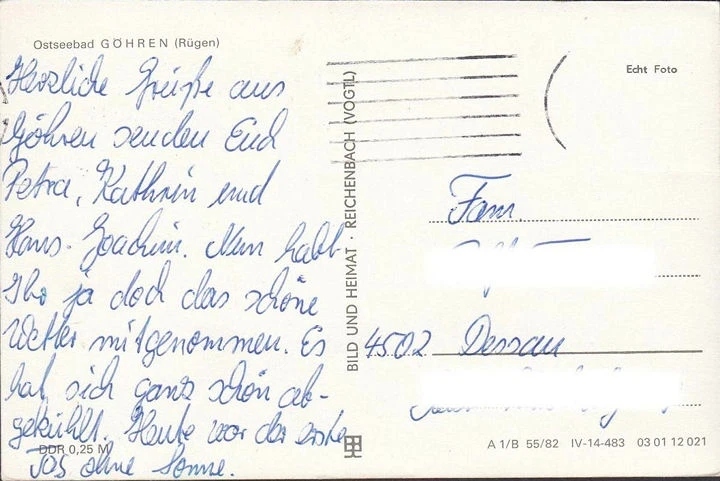 Ostseebad GÖHREN (Rügen)
Herzliche Grüße aus
Göhren senden Euch
Petra, Kathrin und
Hans-Joachim. Nun habt
Ihr ja doch das schöne
Wetter mitgenommen. Es
hat sich ganz schön ab-
gekühlt. Heute war der erste
Tag ohne Sonne.
DDR 0,25 M
BILD UND HEIMAT · REICHENBACH (VOGTL)
Echt Foto
Fam.
4502 Dessau
A 1/B 55/82 IV-14-483 03 01 12 021